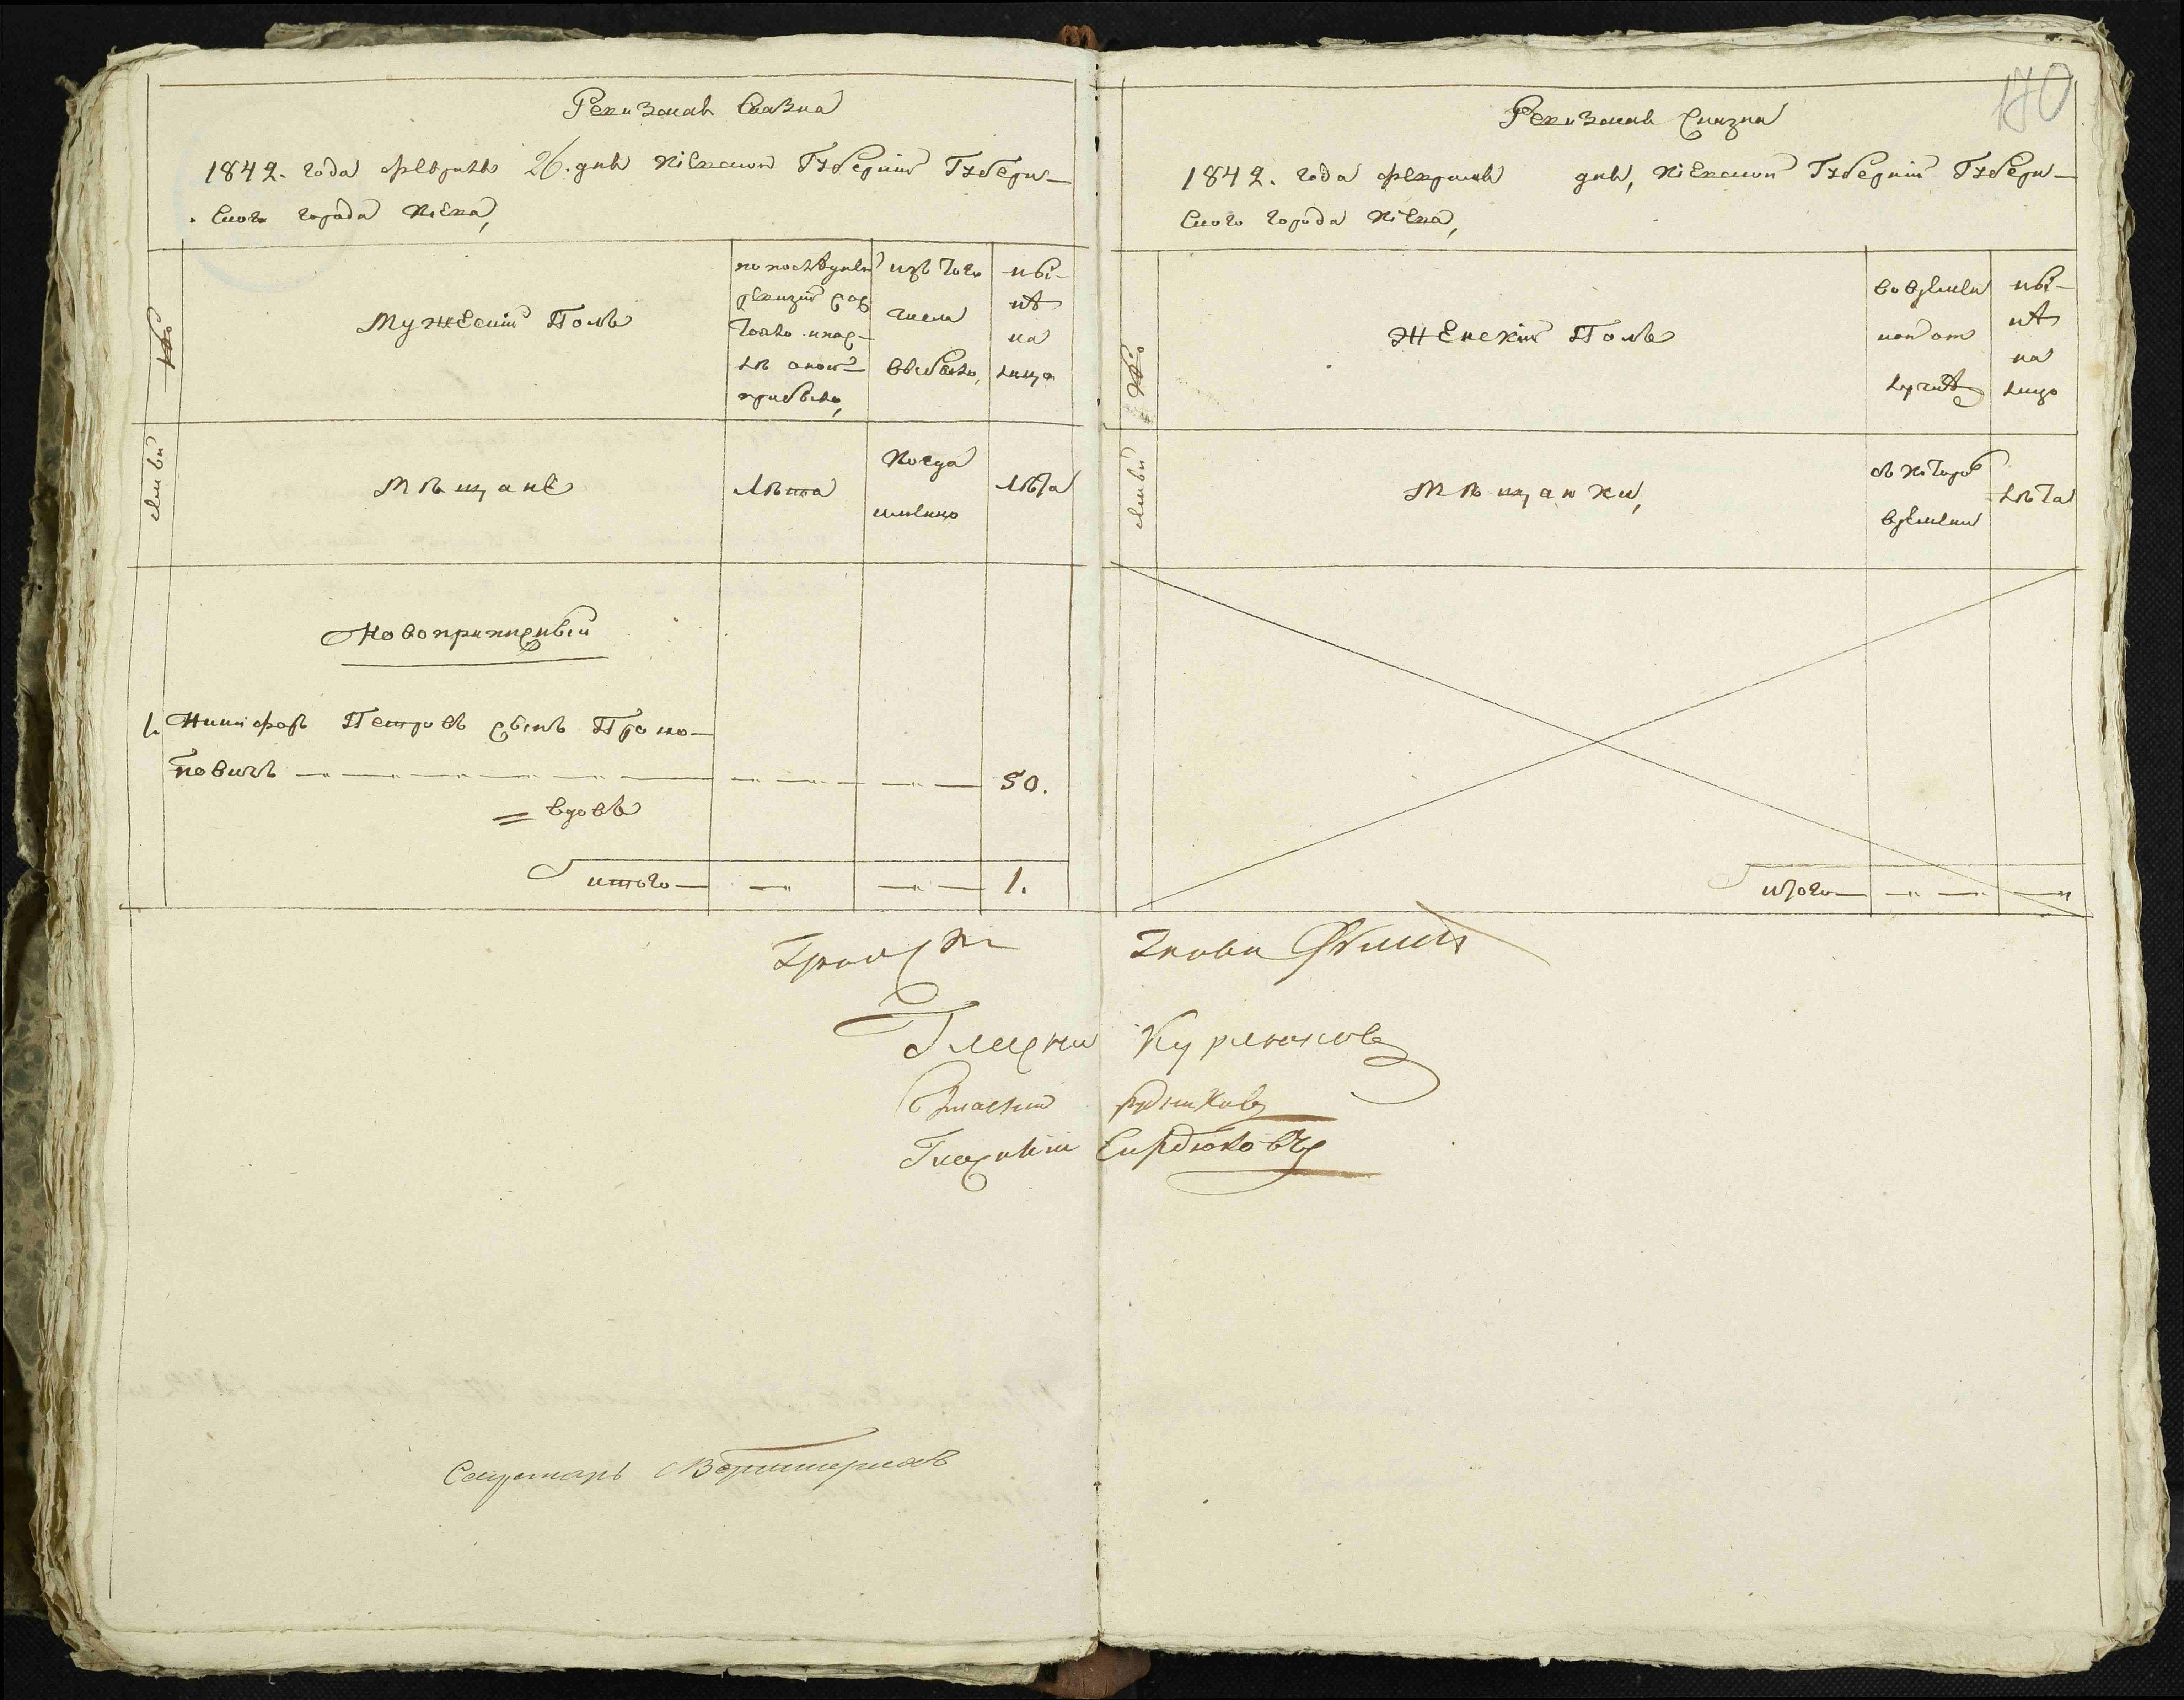 Ревизская Сказка
1842. года февраля 26. дня Кіевской Губерніи Губерн-
скаго города Кіева,
№
Мужескій Полъ
по последней ревизіи состояло и послѣ оной прибыло,
изъ того числа выбыло,
нынѣ на лицо
семьи
Мѣщане
Лѣта
Когда именно
Лѣта
Новоприписный
1. Никифоръ Петровъ сынъ Проко-
повичъ 50.
= вдовъ
итого 1.
170
Ревизская Сказка
1842. года февраля дня, Кіевской Губерніи Губерн-
скаго города Кіева,
№
Женскій Полъ
во временной отлучкѣ
нынѣ на лицо
семьи
Мѣщанки,
съ котораго времени
Лѣта
итого
Гласный
Гласный
Гласный Сердюковъ
Секретарь